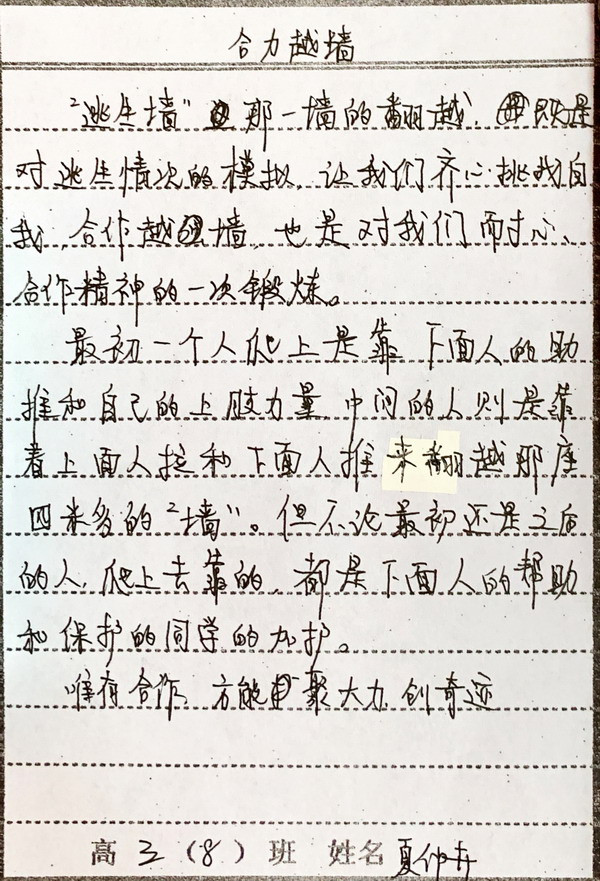 合力越墙
“逃生墙”那一墙的翻越，既是
对逃生情次的模拟，让我们齐心挑战自
我，合作越墙，也是对我们耐心、
合作精神的一次锻炼。
最初一个人爬上是靠下面人的助
推和自己的上肢力量，中间的人则是靠
着上面人拉和下面人推来翻越那座
四米多的“墙”。但不论最初还是之后
的人，爬上去靠的，都是下面人的帮助
和保护的同学的加护。
唯有合作，方能聚大力，创奇迹
高三（8）班 姓名夏仲卉